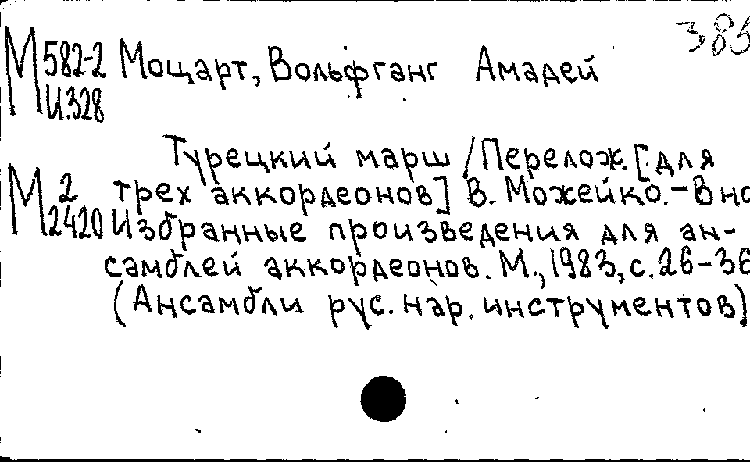 385
М 582-2 Моцарт, Вольфганг Амадей
И.328
Турецкий марш / Перелож. [для
М 2 трех аккордеонов] В. Можейко. – В но
2420 Избранные произведения для ан-
самблей аккордеонов. М., 1983, с. 26-36
(Ансамбли рус. нар. инструментов)